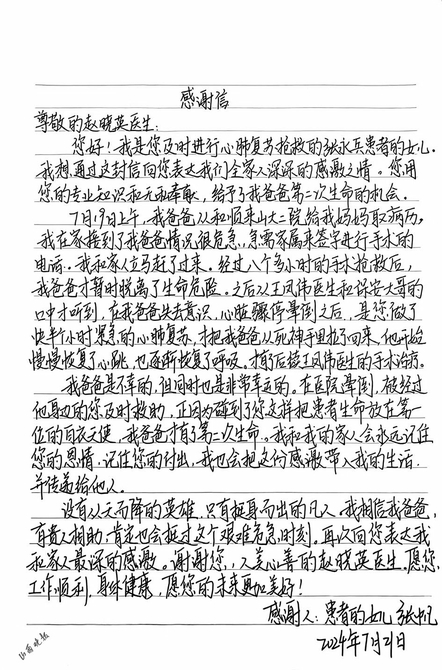 感谢信
尊敬的赵晓英医生：
您好！我是您及时进行心肺复苏抢救的张永兵患者的女儿。
我想通过这封信向您表达我们全家人深深的感激之情。您用
您的专业知识和无私奉献，给予了我爸爸第二次生命的机会。
7月19日上午，我爸爸从和顺来山大二院给我妈妈取病历。
我在家接到了我爸爸情况很危急，急需家属来签字进行手术的
电话。我和家人立马赶了过来。经过八个多小时的手术抢救后，
我爸爸才暂时脱离了生命危险。之后从王凤伟医生和保安大哥的
口中才听到，在我爸爸失去意识，心脏骤停晕倒之后，是您做了
快半个小时紧急的心肺复苏，才把我爸爸从死神手里拉了回来。他开始
慢慢恢复了心跳，也逐渐恢复了呼吸。才有后续王凤伟医生的手术治疗。
我爸爸是不幸的，但同时也是非常幸运的。在医院晕倒，被经过
他身边的您及时救助，正因为碰到了您这样把患者生命放在第一
位的白衣天使，我爸爸才有了第二次生命。我和我的家人会永远记住
您的恩情，记住您的付出，我也会把这份感激带入我的生活，
并传递给他人。
没有从天而降的英雄，只有挺身而出的凡人。我相信我爸爸，
有贵人相助，肯定也会挺过这个艰难危急时刻。再次向您表达我
和家人最深的感激。谢谢您，人美心善的赵晓英医生。愿您，
工作顺利，身体健康，愿您的未来更加美好！
感谢人：患者的女儿 张帆
2024年7月21日
山西晚报